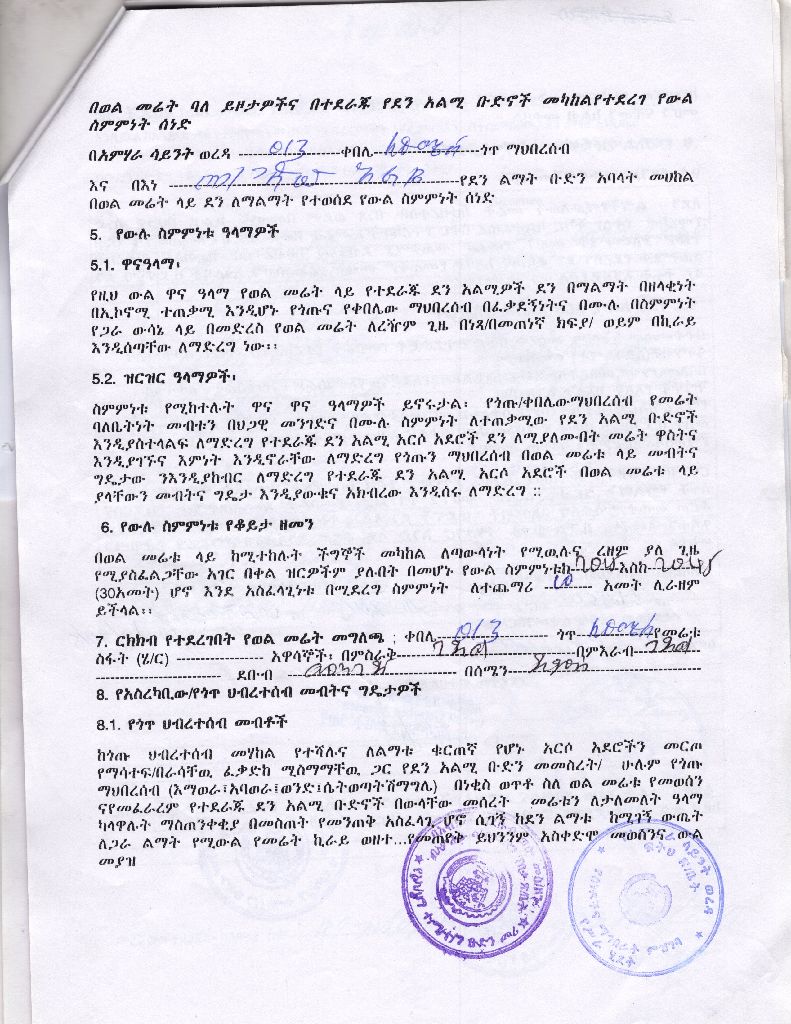 በወል መሬት ባለ ይዞታዎችና በተደራጁ የደን አልሚ ቡድኖች መካከልየተደረገ የውል
ስምምነት ሰነድ
በአምሃራ ሳይንት ወረዳ 013 ቀበሌ ጎጥ ማህበረሰብ
እና በእነ የደን ልማት ቡድን አባላት መሀከል
በወል መሬት ላይ ደን ለማልማት የተወሰደ የውል ስምምነት ሰነድ
5. የውሉ ስምምነቱ ዓላማዎች
5.1. ዋናዓላማ፡
የዚህ ውል ዋና ዓላማ የወል መሬት ላይ የተደራጁ ደን አልሚዎች ደን በማልማት በዘላቂነት
በኢኮኖሚ ተጠቃሚ እንዲሆኑ የጎጡና የቀበሌው ማህበረሰብ በፈቃደኝነትና በሙሉ በስምምነት
የጋራ ውሳኔ ላይ በመድረስ የወል መሬት ለረዥም ጊዜ በነጻ/በመጠነኛ ክፍያ/ ወይም በኪራይ
እንዲሰጣቸው ለማድረግ ነው፡፡
5.2. ዝርዝር ዓላማዎች፡
ስምምነቱ የሚከተሉት ዋና ዋና ዓላማዎች ይኖሩታል፡ የጎጡ/ቀበሌውማህበረሰብ የመሬት
ባለቤትነት መብቱን በህጋዊ መንገድና በሙሉ ስምምነት ለተጠቃሚው የደን አልሚ ቡድኖች
እንዲያስተላልፍ ለማድረግ የተደራጁ ደን አልሚ አርሶ አደሮች ደን ለሚያለሙበት መሬት ዋስትና
እንዲያገኙና እምነት እንዲኖራቸው ለማድረግ የጎጡን ማህበረሰብ በወል መሬቱ ላይ መብትና
ግዴታው ንእንዲያከብር ለማድረግ የተደራጁ ደን አልሚ አርሶ አደሮች በወል መሬቱ ላይ
ያላቸውን መብትና ግዴታ እንዲያውቁና አክብረው እንዲሰሩ ለማድረግ ፡፡
6. የውሉ ስምምነቱ የቆይታ ዘመን
በወል መሬቱ ላይ ከሚተከሉት ችግኞች መካከል ለጣውላነት የሚዉሉና ረዘም ያለ ጊዜ
የሚያስፈልጋቸው አገር በቀል ዝርዎችም ያሉበት በመሆኑ የውል ስምምነቱከ 2015 እስከ 2045
(30አመት) ሆኖ እንደ አስፈላጊነቱ በሚደረግ ስምምነት ለተጨማሪ 10 አመት ሊራዘም
ይችላል፡፡
7. ርክክብ የተደረገበት የወል መሬት መግለጫ ፤ ቀበሌ 013 ጎጥ የመሬቱ
ስፋት (ሄ/ር) አዋሳኞች፡ በምስራቅ ገደል በምእራብ ገደል
ደቡብ በሰሜን
8. የአስረካቢው/የጎጥ ህብረተሰብ መብትና ግዴታዎች
8.1. የጎጥ ህብረተሰብ መብቶች
ከጎጡ ህብረተሰብ መሃከል የተሻሉና ለልማቱ ቁርጠኛ የሆኑ አርሶ አደሮችን መርጦ
የማሳተፍ/በራሳቸዉ ፈቃድከ ሚስማማቸዉ ጋር የደን አልሚ ቡድን መመስረት/ ሁሉም የጎጡ
ማህበረሰብ (እማወራ፤አባወራ፤ወንድ፤ሴትወጣትሽማግሌ) በነቂስ ወጥቶ ስለ ወል መሬቱ የመወሰን
ናየመፈራረም የተደራጁ ደን አልሚ ቡድኖች በውላቸው መሰረት መሬቱን ለታለመለት ዓላማ
ካላዋሉት ማስጠንቀቂያ በመስጠት የመንጠቅ አስፈላጊ ሆኖ ሲገኝ ከደን ልማቱ ከሚገኝ ውጤት
ለጋራ ልማት የሚውል የመሬት ኪራይ ወዘተ...የመጠየቅ ይህንንም አስቀድሞ መወሰንና ውል
መያዝ